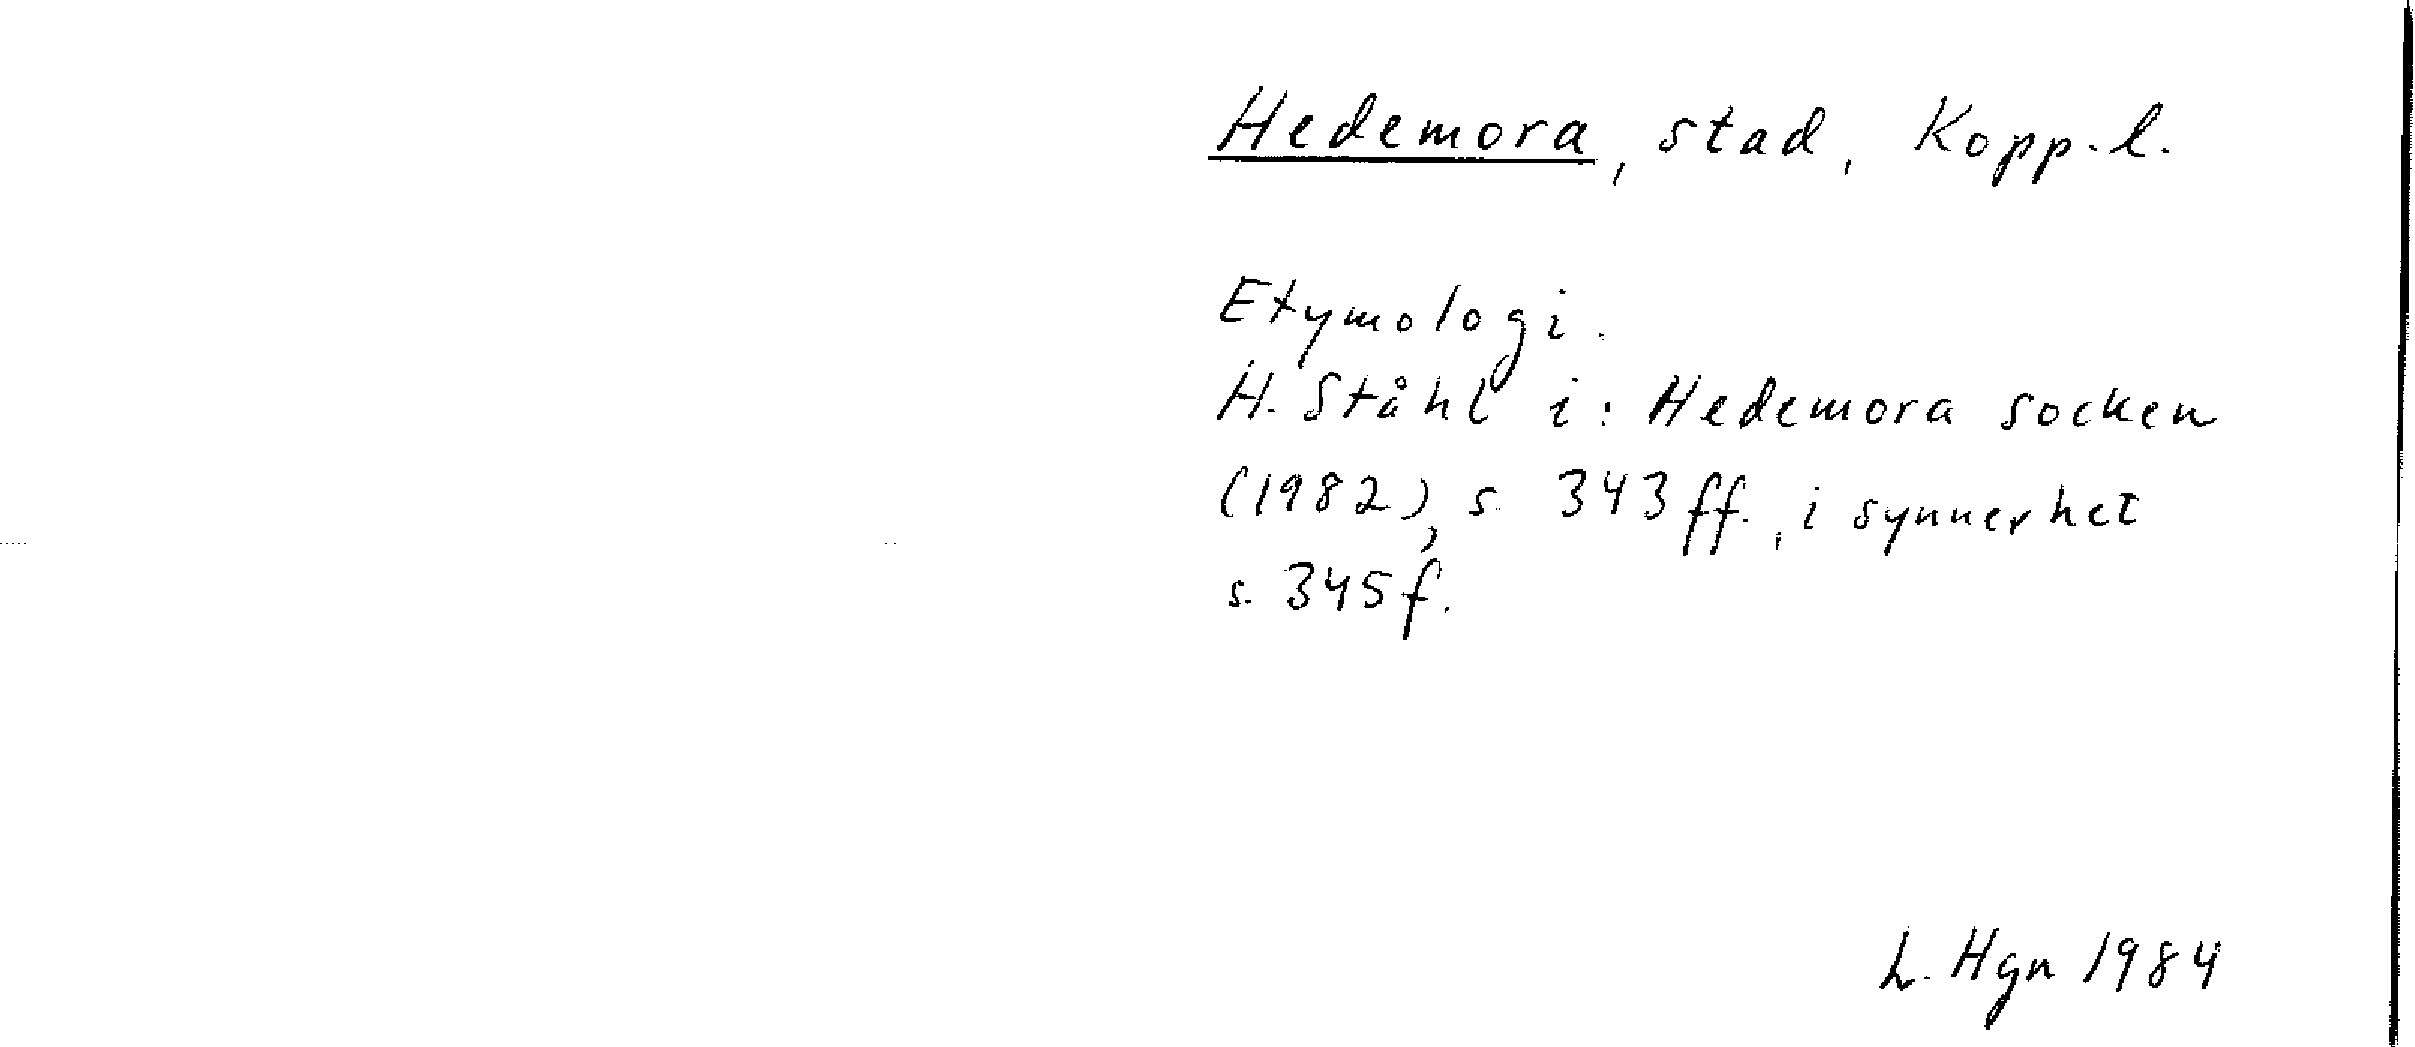 Hedemora, stad, Kopp.l.
Etymologi.
H. Ståhl i: Hedemora socken
(1982), s. 343 ff., i synnerhet
s. 345 f.
L. Hgn 1984